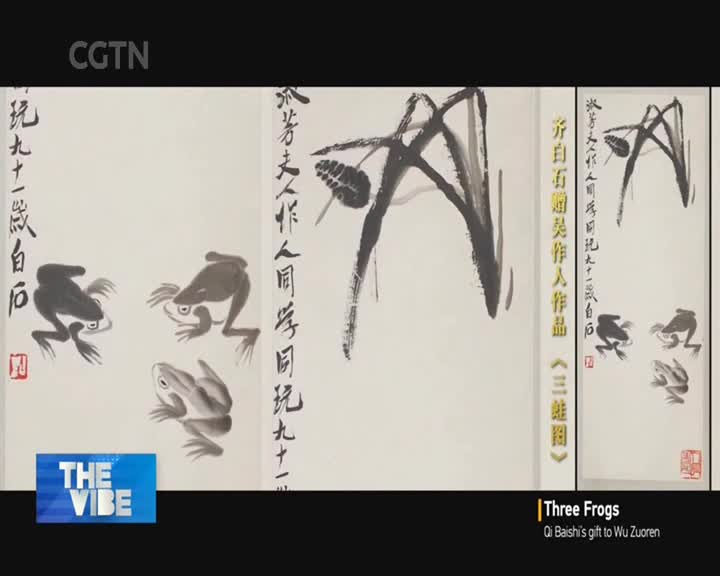 CGTN
玩九十一歲白石
淑芳夫人作人同学同玩九十一
齐白石赠吴作人作品 《三蛙图》
淑芳夫人作人同学同玩九十一歲白石
THE
VIBE
Three Frogs
Qi Baishi's gift to Wu Zuoren